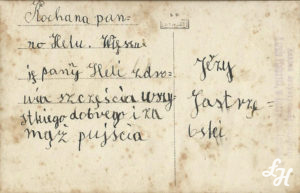 Kochana pan-
no Helu. Węszué
ię panÿ Heli zdro-
wia szczęścia wszy-
stkiego dobrego i za
mąż pujścia
Jeży
Jastrzę-
bski